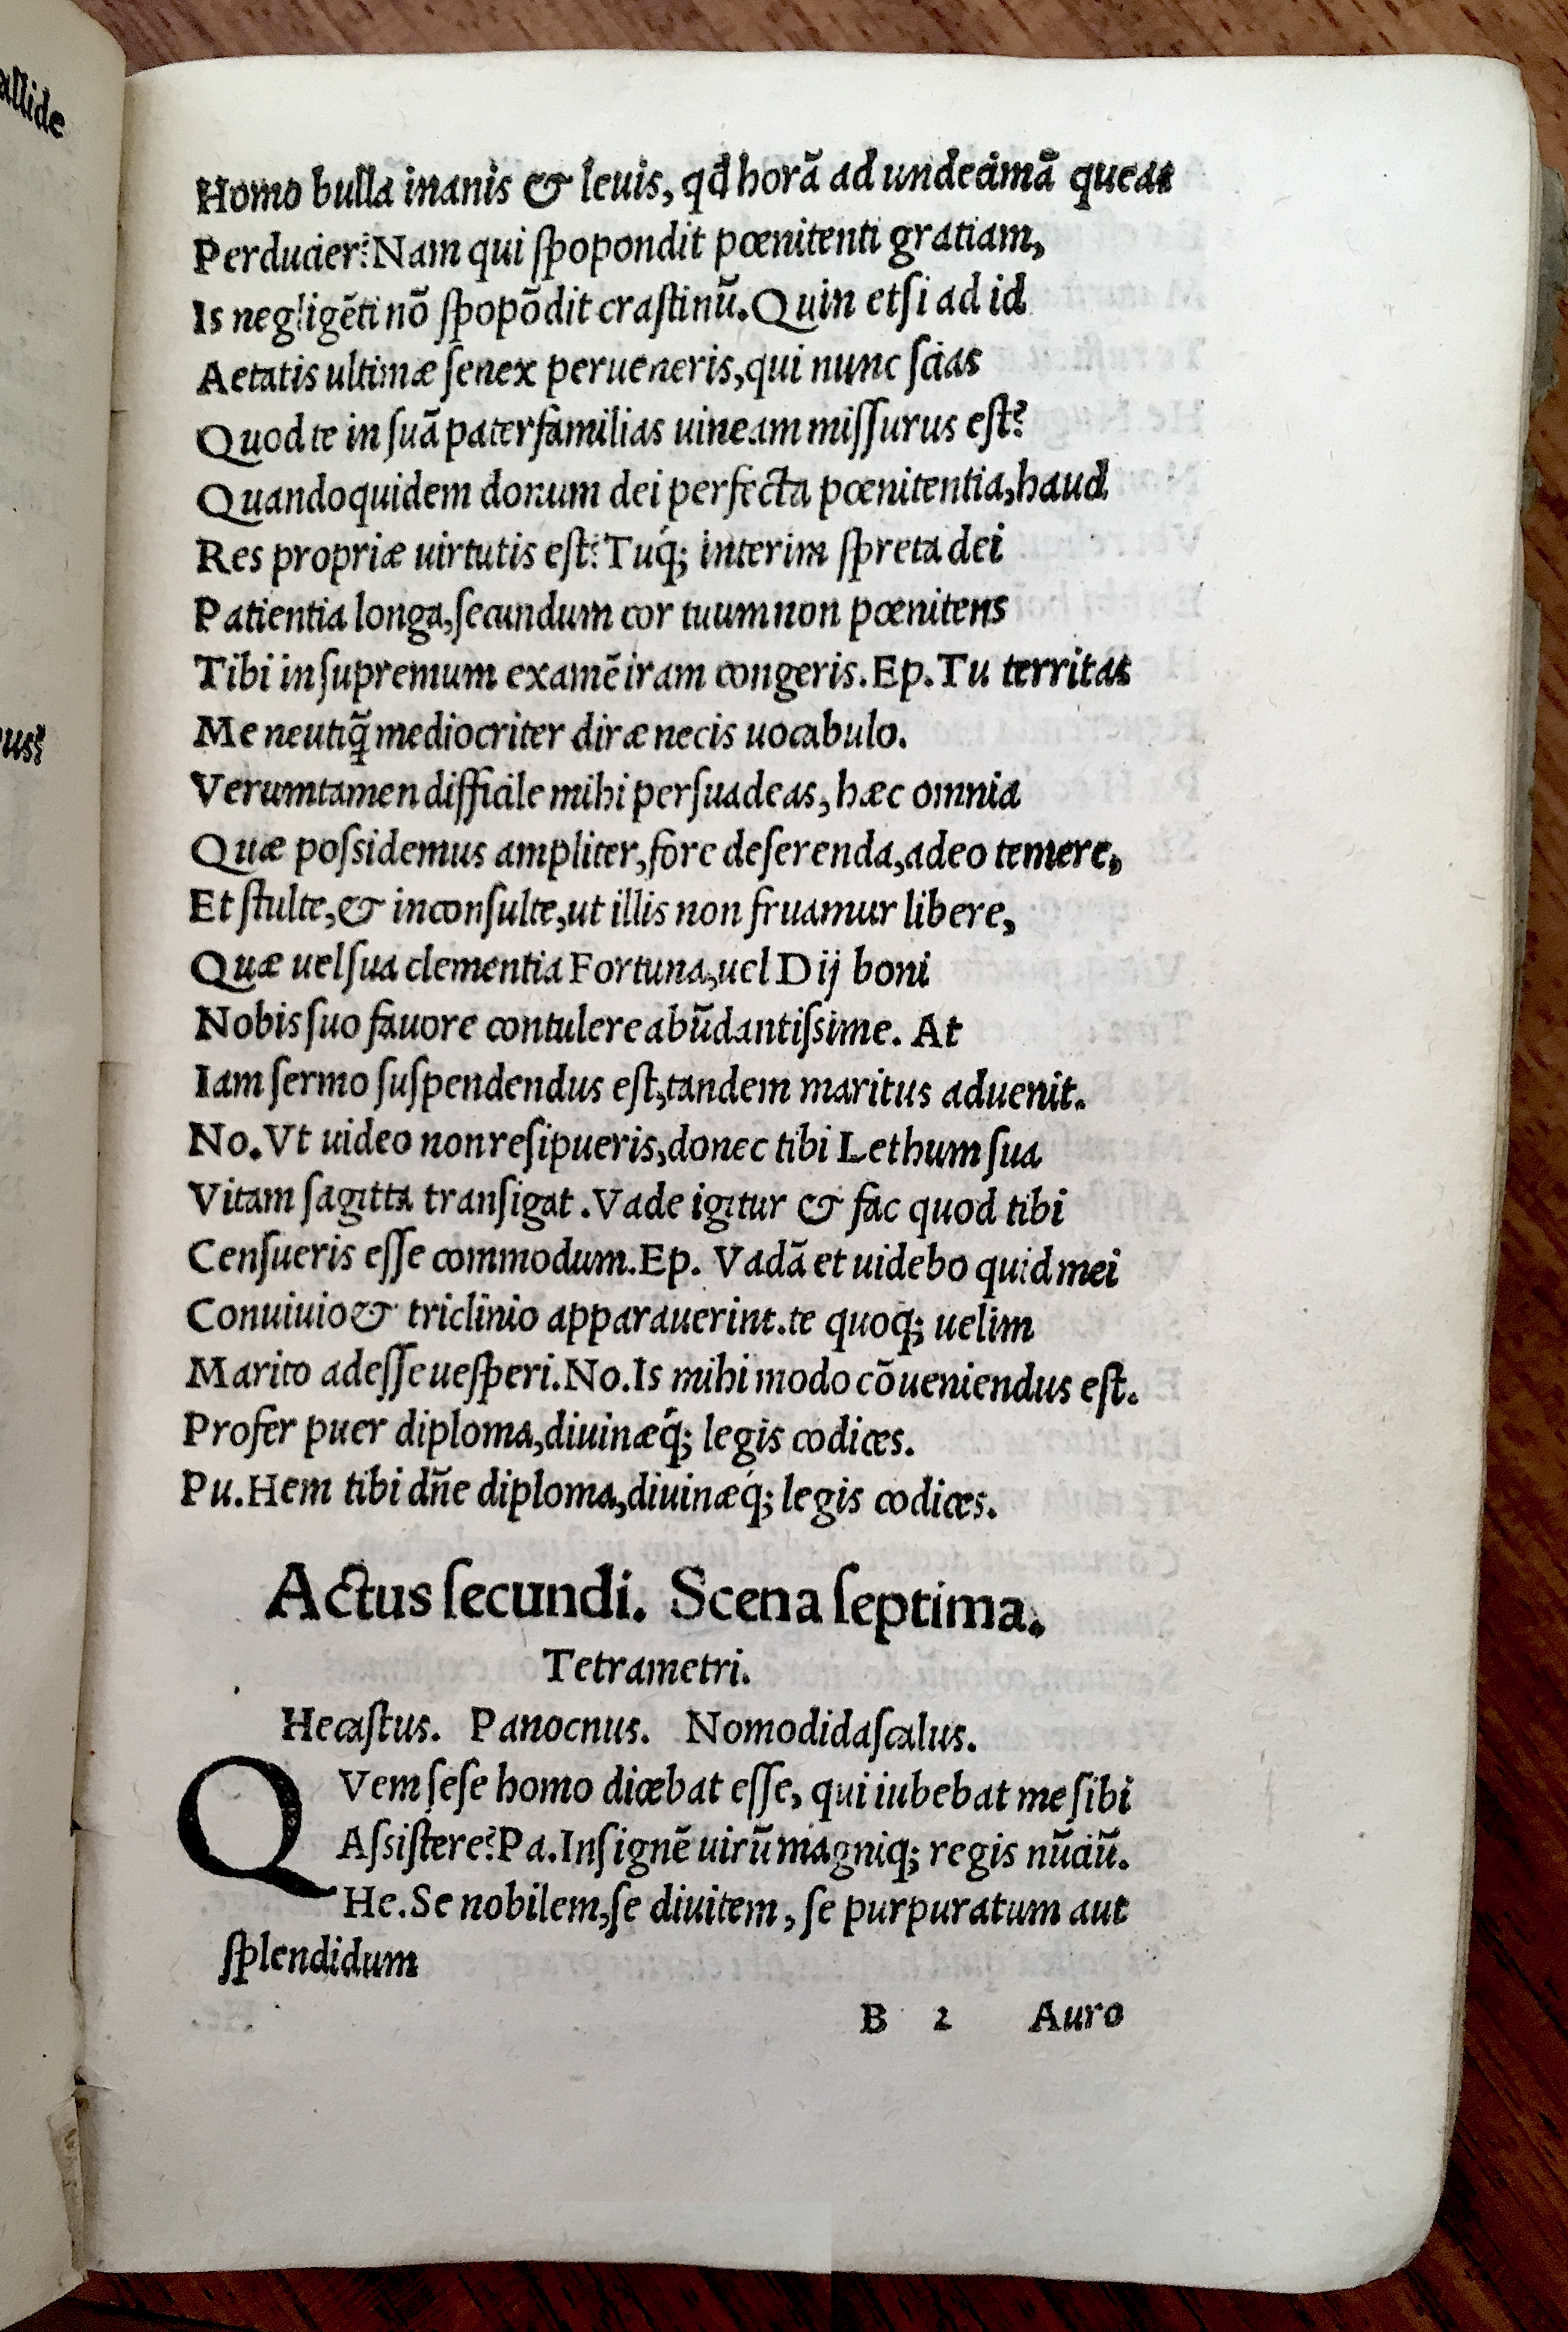 allide
us?
Homo bulla inanis & leuis, qd̄ horā ad undecimā queas
Perducier? Nam qui ſpopondit pœnitenti gratiam,
Is negligẽti nō ſpopōdit craſtinū. Quin etſi ad id
Aetatis ultimæ ſenex perueneris, qui nunc ſcias
Quod te in ſuā paterfamilias uineam miſſurus eſt?
Quandoquidem donum dei perfecta pœnitentia, haud
Res propriæ uirtutis eſt? Tuq́; interim ſpreta dei
Patientia longa, ſecundum cor tuum non pœnitens
Tibi in ſupremum examẽ iram congeris. Ep. Tu territas
Me neutiq̃ mediocriter diræ necis uocabulo.
Verumtamen difficile mihi perſuadeas, hæc omnia
Quæ poſsidemus ampliter, fore deſerenda, adeo temere,
Et ſtulte, & inconſulte, ut illis non fruamur libere,
Quæ uel ſua clementia Fortuna, uel Dij boni
Nobis ſuo fauore contulere abūdantiſsime. At
Iam ſermo ſuſpendendus eſt, tandem maritus aduenit.
No. Vt uideo non reſipueris, donec tibi Lethum ſua
Vitam ſagitta tranſigat. Vade igitur & fac quod tibi
Cenſueris eſſe commodum. Ep. Vadā et uidebo quid mei
Conuiuio & triclinio apparauerint. te quoq; uelim
Marito adeſſe ueſperi. No. Is mihi modo cōueniendus eſt.
Profer puer diploma, diuinæq́; legis codices.
Pu. Hem tibi dñe diploma, diuinæq́; legis codices.
Actus ſecundi. Scena ſeptima.
Tetrametri.
Hecaſtus. Panocnus. Nomodidaſcalus.
QVem ſeſe homo dicebat eſſe, qui iubebat me ſibi
Aſsiſtere? Pa. Inſignẽ uirū magniq; regis nūciū.
He. Se nobilem, ſe diuitem, ſe purpuratum aut
ſplendidum
B 2 Auro